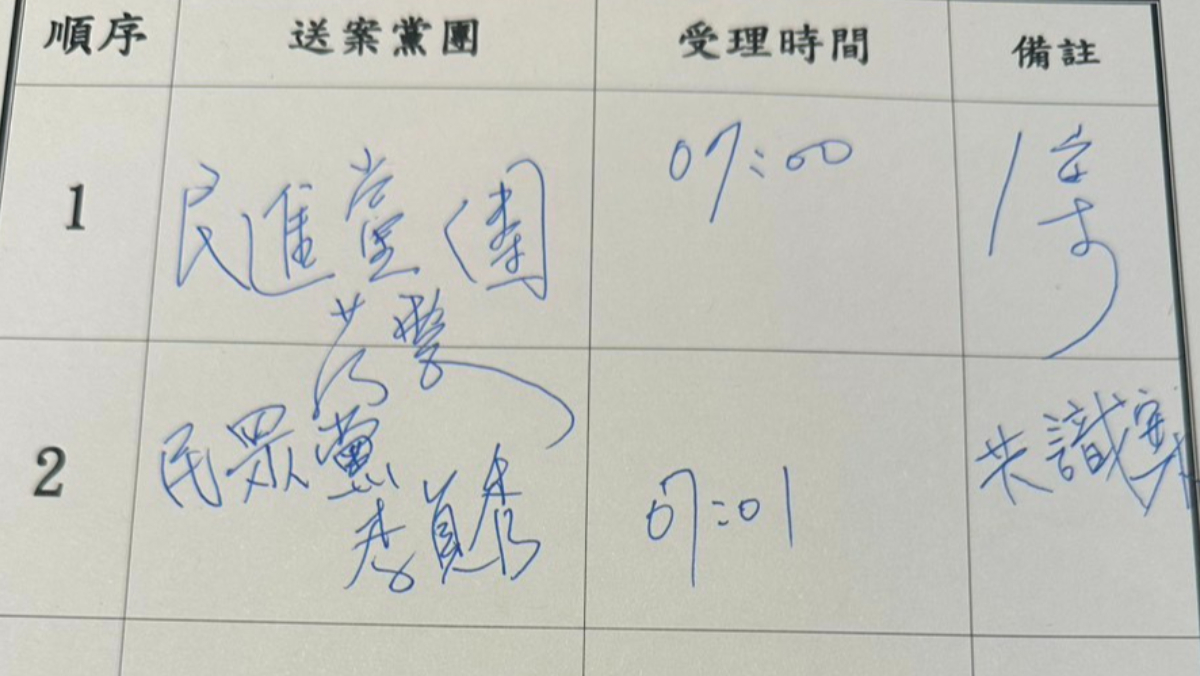 順序 送案黨團 受理時間 備註
1 民進黨團 07:00
2 民眾黨 07:01 共識案
李貞秀